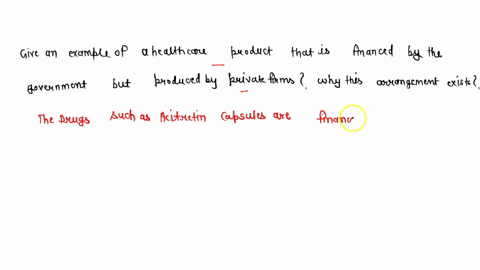 Give an example of a healthcare product that is financed by the
government but produced by private firms? why this arrangement exists?
The Drugs such as Acitretin Capsules are financ